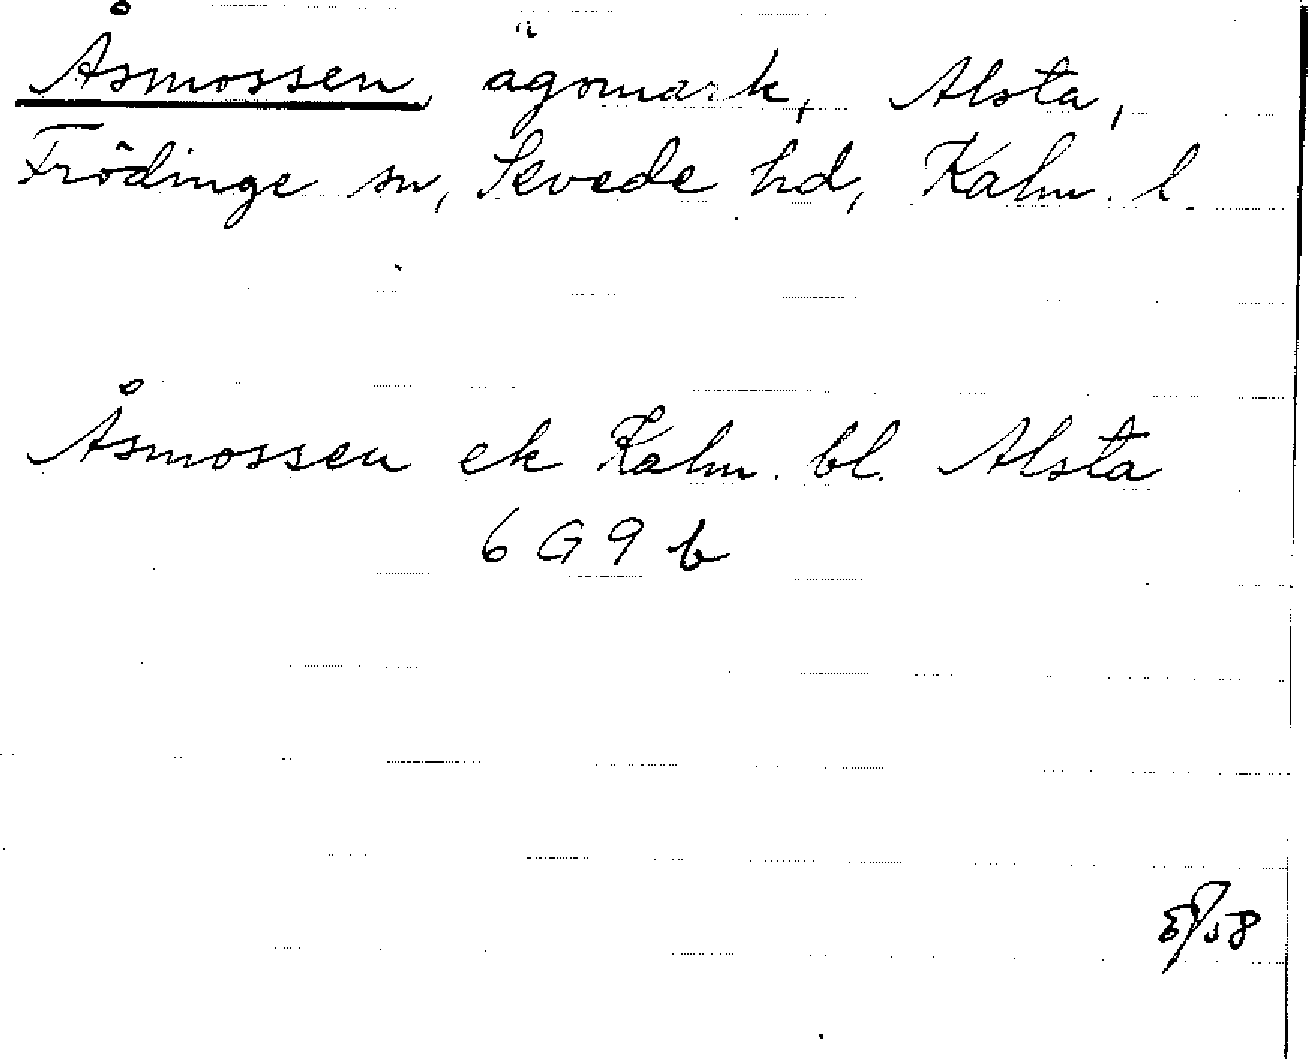 Åsmossen, ägomark, Alsta,
Frödinge sn, Sevede hd, Kalm. l.
Åsmossen ek Kalm. bl. Alsta
6 G 9 b